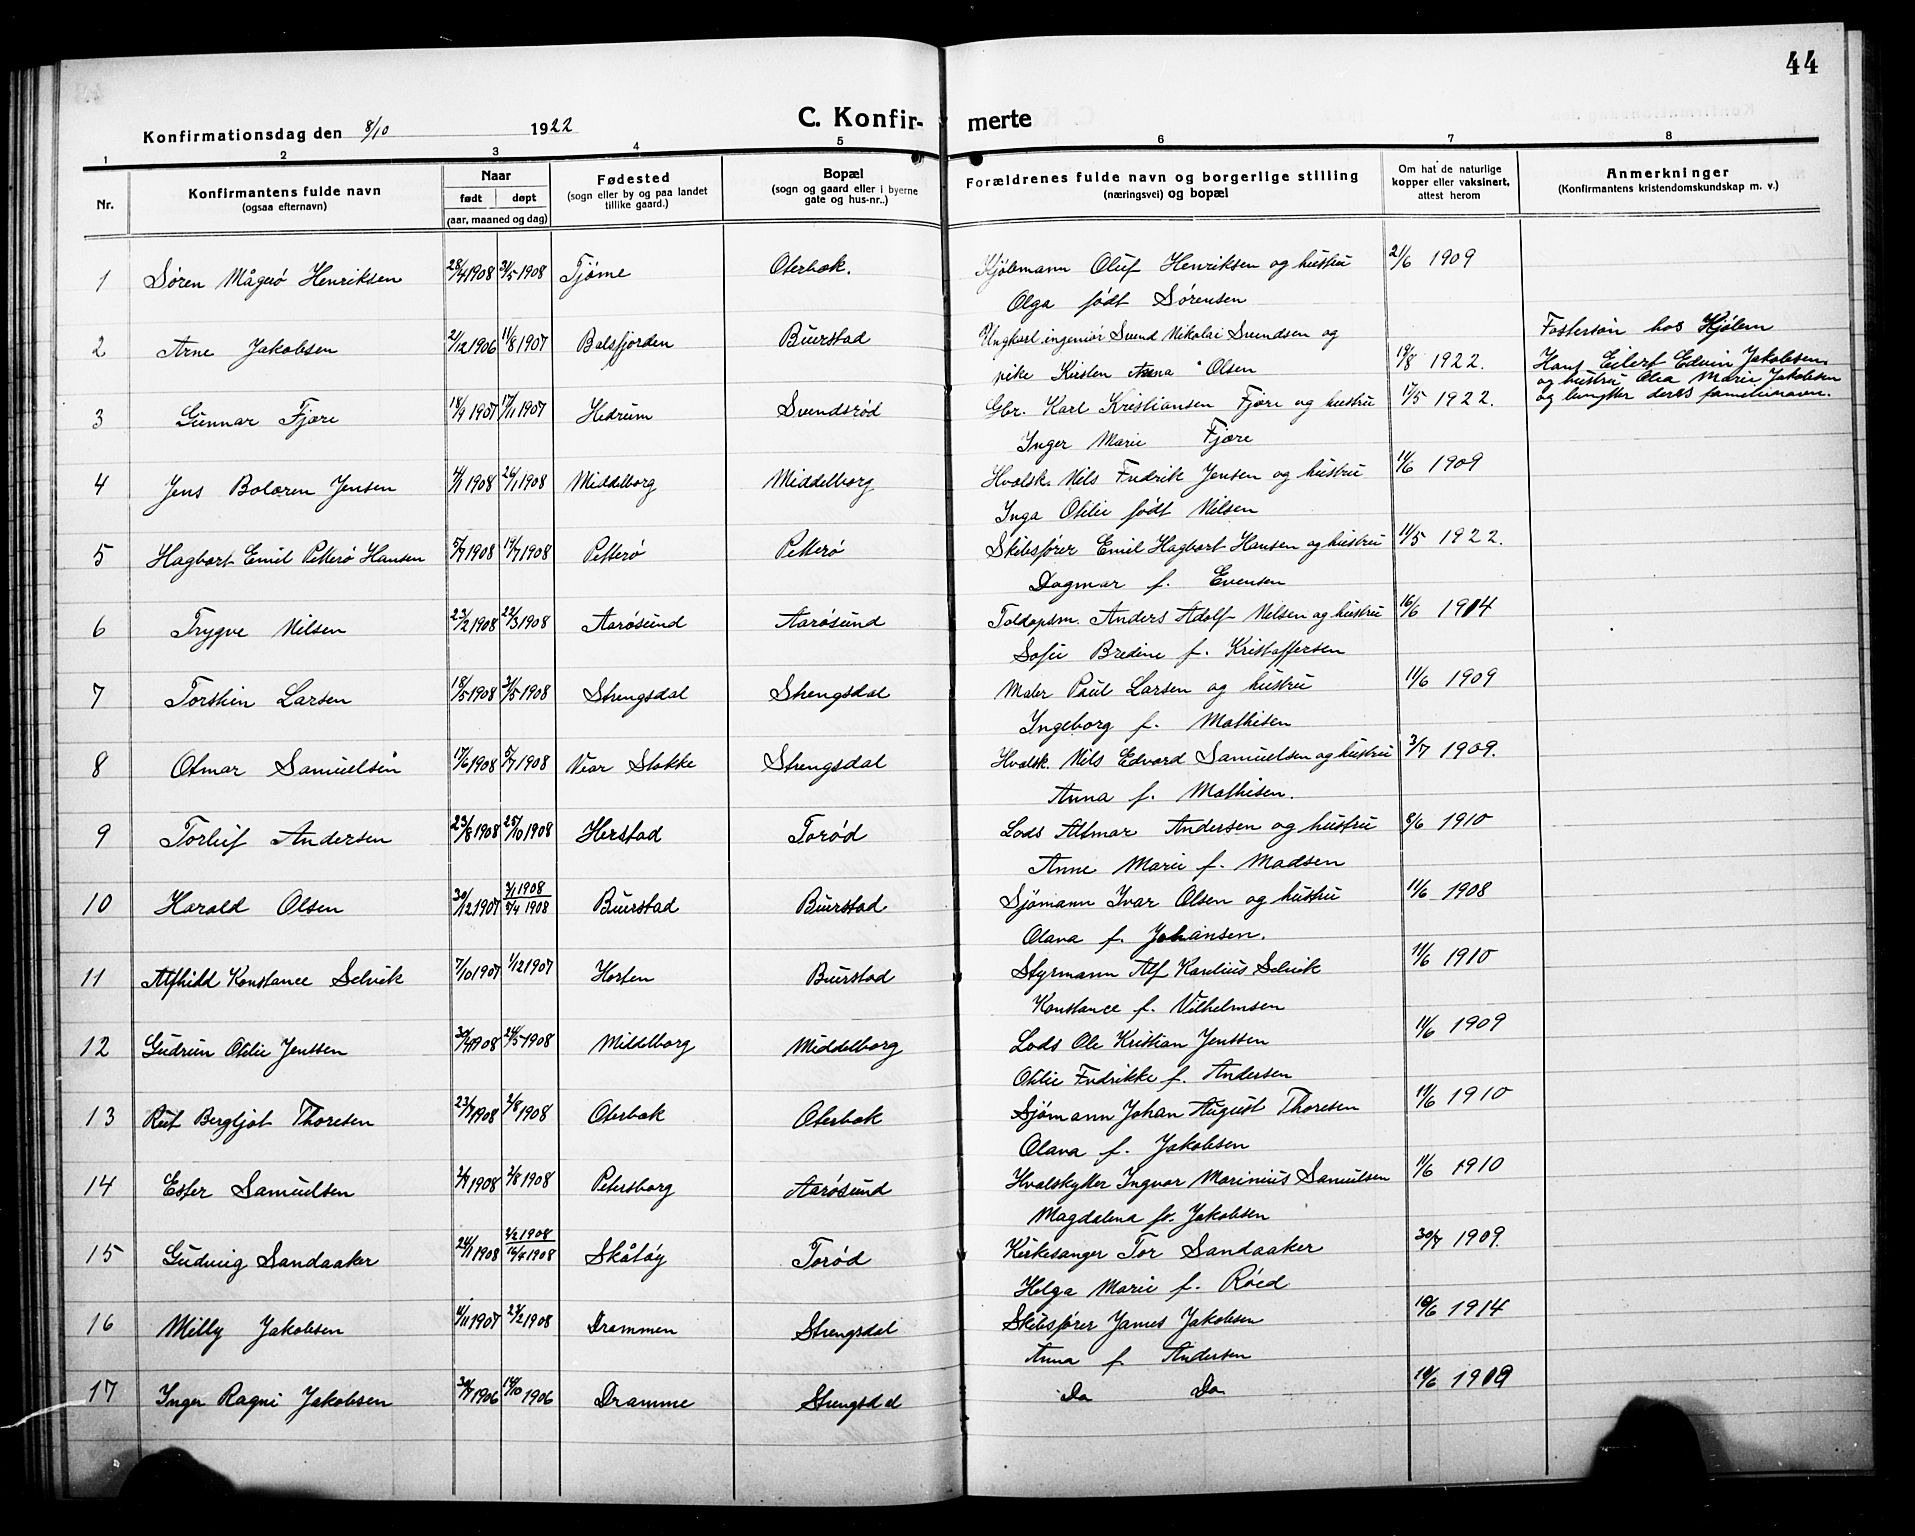 44
Konfirmationsdag den 8/10 1922
C. Konfir- merte
1 2 3 4 5 6 7 8
Nr. Konfirmantens fulde navn (ogsaa efternavn) Naar født døpt (aar, maaned og dag) Fødested (sogn eller by og paa landet tillike gaard.) Bopæl (sogn og gaard eller i byerne gate og hus-nr..) Forældrenes fulde navn og borgerlige stilling (næringsvei) og bopæl Om hat de naturlige kopper eller vaksinert, attest herom Anmerkninger (Konfirmantens kristendomskundskap m. v.)
1 Søren Mågerø Henriksen 28/4 1908 31/5 1908 Tjøme Oterbæk. Hjølemann Oluf Henriksen og hustru 21/6 1909
Olga født Sørensen
2 Arne Jakobsen 21/12 1906 11/8 1907 Balsfjorden Buerstad Ungkarl ingeniør Svend Nikolai Svendsen og Fostersøn hos Hjølem
pike Kirsten Anna Olsen 19/8 1922. Hans Eilert Edvin Jakobsen
og hustru Olea Marie Jakobsen
3 Gunnar Fjære 18/9 1907 17/11 1907 Hedrum Svendsrød Gbr. Karl Kristiansen Fjære og hustru 17/5 1922. og benytter deres familienavn.
Inger Marie Fjære
4 Jens Bolæren Jensen 4/1 1908 26/1 1908 Middelborg Middelborg Hvalsk. Nils Fredrik Jensen og hustru 11/6 1909
Inga Otilie født Nilsen
5 Hagbart Emil Petterø Hansen 5/7 1908 19/7 1908 Petterø Petterø Skibsfører Emil Hagbart Hansen og hustru 11/5 1922.
Dagmar f. Evensen
6 Trygve Nilsen 23/2 1908 22/3 1908 Aarøsund Aarøsund Toldopsm. Anders Adolf Nilsen og hustru 16/6 1914
Sofie Bredine f. Kristoffersen
7 Torstein Larsen 18/5 1908 31/5 1908 Strengsdal Strengsdal Maler Paul Larsen og hustru 11/6 1909
Ingeborg f. Mathisen
8 Otmar Samuelsen 17/6 1908 5/7 1908 Vear Stokke Strengsdal Hvalsk. Nils Edvard Samuelsen og hustru 3/7 1909.
Anna f. Mathisen.
9 Torleif Andersen 23/8 1908 25/10 1908 Herstad Torød Lods Altmar Andersen og hustru 8/6 1910
Anne Marie f. Madsen
10 Harald Olsen 30/12 1907 3/1 1908 Buerstad Buerstad Sjømann Ivar Olsen og hustru 11/6 1908
5/4 1908 Olava f. Johansen.
11 Alfhild Konstance Selvik 7/10 1907 1/12 1907 Horten Buerstad Styrmann Alf Karelius Selvik 11/6 1910
Konstance f. Vilhelmsen
12 Gudrun Otilie Jenssen 30/4 1908 24/5 1908 Middelborg Middelborg Lods Ole Kristian Jenssen 11/6 1909
Otilie Fredrikke f. Andersen
13 Rut Bergljot Thoresen 23/7 1908 2/8 1908 Oterbæk Oterbæk Sjømann Johan August Thoresen 11/6 1910
Olava f. Jakobsen
14 Ester Samuelsen 2/7 1908 2/8 1908 Petersborg Aarøsund Hvalskytter Ingvar Marinius Samuelsen 11/6 1910
Magdalena f. Jakobsen
15 Gudveig Sandaaker 24/1 1908 2/2 1908 Skåtøy Torød Kirkesanger Tor Sandaaker 30/7 1909.
12/4 1908 Helga Marie f. Röed
16 Milly Jakobsen 11/11 1907 23/2 1908 Drammen Strengsdal Skibsfører James Jakobsen 10/6 1914
Anna f. Andersen
17 Inger Ragni Jakobsen 30/7 1906 14/10 1906 Dramme Strengsdal Do Do 10/6 1909